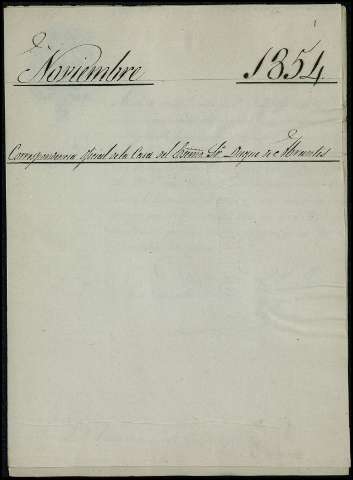 Noviembre 1854.
Correspondencia oficial de la Casa del Exmo. Sr. Duque de Abrantes